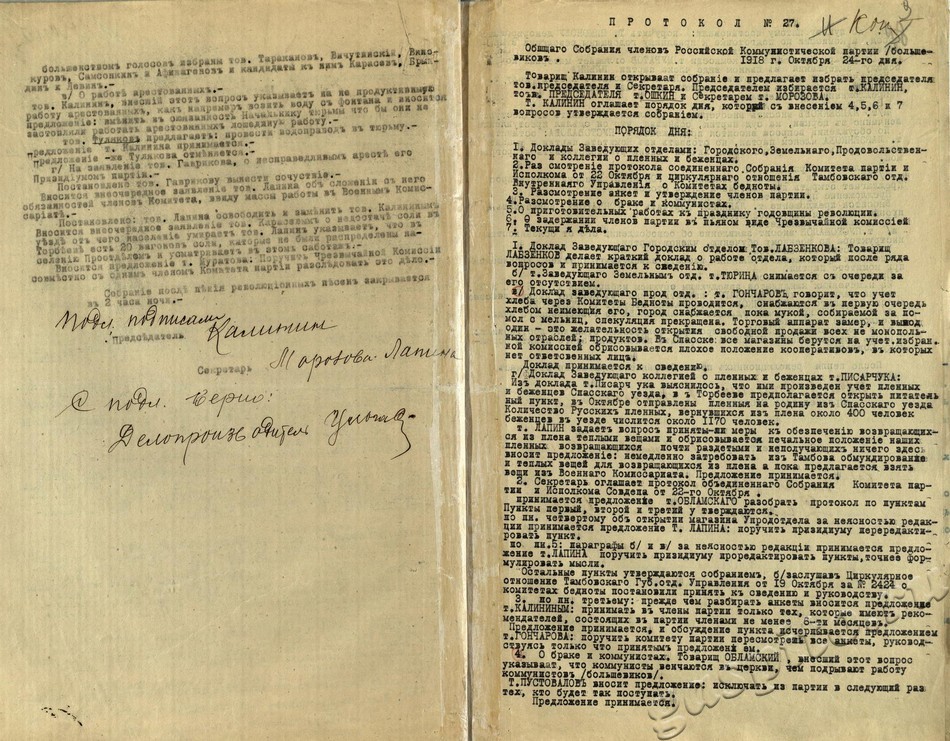 большенством голосом избраны тов. Тараканов, Вичутинский, Вино-
куров, Самсонкин и Афинагенов и кандидаты к ним Карасев,
дин и Левин.-
О работе арестованных.-
тов. Калинин, внесший этот вопрос указывает на не продуктивную
работу арестованных, как например возить воду с фонтана и вносится
предложение: вменить в обязанность Начальнику тюрьмы что бы они не
заставляли работать арестованных лошадиную работу.-
тов. Туляков предлагает: провести водопровод в тюрьму.-
предложение т. Калинина принимается.-
Предложение -же Тулякова отменяется.-
г/ На заявление тов. Гаврикова, о несправедливом аресте его
Призидиумом партии.-
Постановлено тов. Гаврикову вынести сочуствие.-
Вносится внеочередное заявление тов. Лапина об сложении с него
обязанностей членов Комитета, ввиду массы работы в Военным Комис-
сариате.-
Постановлено: тов. Лапина освободить и заменить тов. Калининым
Вносится внеочередное заявление тов. Карасева о недостаче соли в
уезде от чего население умирает тов. Лапин указывает, что в
Торбееве есть 20 вагонов соли, которыя не были распределены на-
селению Продотделом и усматривает в этом саботаж.-
Вносится предложение т. Муратова: Поручить Чрезвычайной Комиссии
совместно с одним членом Комитета партии разследовать это дело.-
Собрание после пения революционных песен закрывается
в 2 часа ночи.-
Подл. подписали
Председатель Калинин
Секретарь Морозова. Лапина
С подл. верно:
Делопроизводитель
ПРОТОКОЛ № 27.
Общаго Собрания членов Российской Коммунистической партии /больше-
виков . 1918 г. Октября 24-го дня.
Товарищ Калинин открывает собрание и предлагает избрать председателя
тов.председателя и Секретаря. Председателем избирается т.КАЛИНИН,
тов. ПРЕДСЕДАТЕЛЯ т.ОШКИН и Секретарем т. МОРОЗОВА.
Т. КАЛИНИН оглашает порядок дня, который с внесением 4,5,6 и 7
вопросов утверждается собранием.
ПОРЯДОК ДНЯ:
I. Доклады Заведующих отделами: Городского,Земельнаго,Продовольствен-
наго и коллегии о пленных и беженцах.
2.Раз смотрение протокола соединеннаго Собрания Комитета партии и
Исполкома от 22 Октября и циркулярнаго отношения Тамбовскаго отд.
Внутренняго Управления о Комитетах бедноты.
3. Разсмотрение анкет и утверждение членов партии.
4.Разсмотрение о браке и коммунистах.
5.О приготовительных работах к празднику годовщины революции.
6. О задержании членов партии в пьяном виде Чрезвычайной комиссией
7. Текущи я дела.
I. Доклад Заведующаго Городским отделом Тов.ЛАБЗЕНКОВА: Товарищ
ЛАБЗЕНКОВ делает краткий доклад о работе отдела, который после ряда
вопросов и принимается к сведению.
б/ т.Заведующаго Земельным отд. т.ТЮРИНА снимается с очереди за
его отсутствием.
в/ Доклад заведующаго прод отд. : т. ГОНЧАРОВ говорит, что учет
хлеба через Комитеты Бедноты проводится, снабжаются в первую очередь
хлебом неимеющия его, город снабжается пока мукой, собираемой за по-
мол с мельниц, спекуляция прекращена. Торговый аппарат замер, и вывод
один - это желательность открытия свободной продажи всех не монополь-
ных отраслей; продуктов. В Спасске все магазины берутся на учет.избран.
ной комиссией обрисовывается плохое положение кооперативов, в которых
нет ответсвенных лиц.
Доклад принимается к сведению.
г/ Доклад Заведующаго коллегией о пленных и беженцах т.ПИСАРЧУКА:
Из доклада т.Писарч ука выяснилось, что ими произведен учет пленных
и беженцев Спасскаго уезда. в Торбееве предполагается открыть питатель
ный пункт, в Октябре отправлены пленныя на родину из Спасскаго уезда
Количество Русских пленных, вернувшихся из плена около 400 человек
беженцев в уезде числится около 1170 человек.
т. ЛАПИН задает вопрос приняты-ли меры к обезпечению возвращающих-
ся из плена теплыми вещами и обрисовывается печальное положение наших
пленных возвращающихся почти раздетыми и неполучающих ничего здесь
вносит предложение: немедленно затребовать из Тамбова обмундирование
и теплых вещей для возвращающихся из плена а пока предлагается взять
вещи из Военнаго Комиссариата. Предложение принимается.
2. Секретарь оглашает протокол объединеннаго Собрания Комитета пар-
тии и Исполкома Совдепа от 22-го Октября .
принимается предложение т.ОБЛАМСКАГО разобрать протокол по пунктам
Пункты первый, второй и третий у тверждаются.
по пн. четвертому об открытии магазина Упродотдела за неясностью редак-
ции принимается предложение Т. ЛАПИНА: поручить призидиуму передактил-
ровать пункт.
по пн.5: параграфы б/ и в/ за неясностью редакции принимается предло-
жение т.ЛАПИНА поручить призидиуму проредактировать пункты,точнее фор-
мулировать мысли.
Остальные пункты утверждаются собранием, б/заслушав Циркулярное
отношение Тамбовскаго Губ.отд. Управления от 19 Октября за № 2424 о
комитетах бедноты постановили принять к сведению и руководству.
3. по пн. третьему: прежде чем разбирать анкеты вносится предложение
т.КАЛИНИНЫМ: принимать в члены партии только тех, которые имеют реко-
мендателей, состоящих в партии членами не менее 6-ти месяцев.
Предложение принимается, и обсуждение пункта исчерпывается предложением
т.ГОНЧАРОВА: поручить комитету партии пересмотреть все анкеты, руковод-
ствуясь только что принятым предложени ем.
4. О браке и коммунистах. Товарищ ОБЛАМСКИЙ , внесший этот вопрос
указывает, что коммунисты венчаются в церкви, чем подрывают работу
коммунистов /большевиков/.
Т.ПУСТОВАЛОВ вносит предложение: исключать из партии в следующий раз
тех, кто будет так поступать.
Предложение принимается.